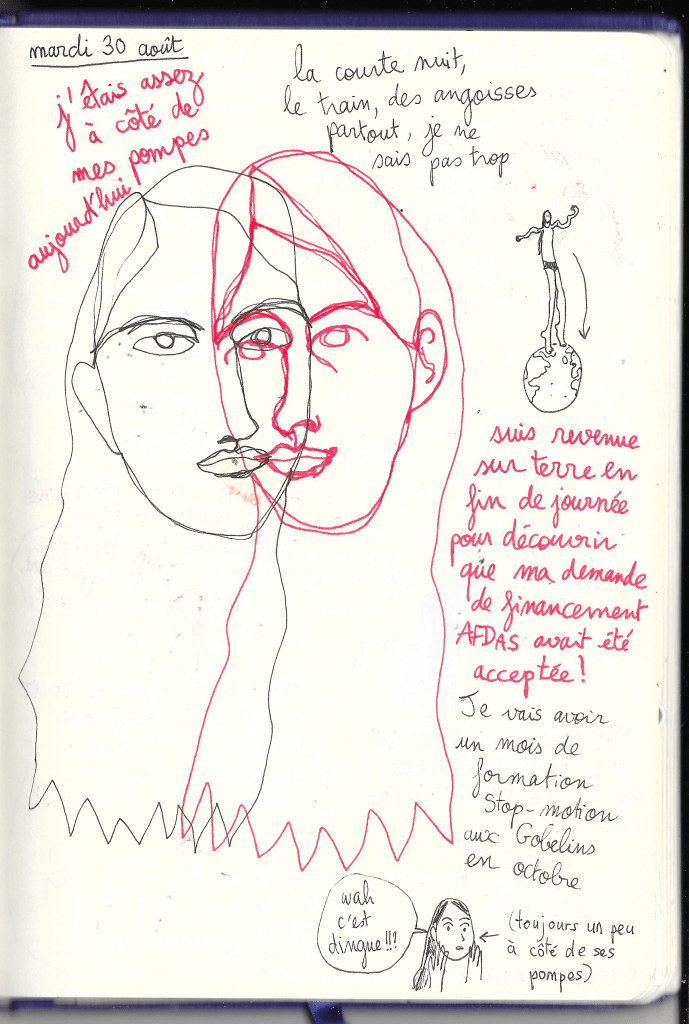 mardi 30 août
j'étais assez
à côté de
mes pompes
aujourd'hui
la courte nuit,
le train, des angoisses
partout, je ne
sais pas trop
suis revenue
sur terre en
fin de journée
pour découvrir
que ma demande
de financement
AFDAS avait été
acceptée!
Je vais avoir
un mois de
formation
Stop-motion
aux Gobelins
en octobre
wah
c'est
dingue!!?
(toujours un peu
à côté de ses
pompes)